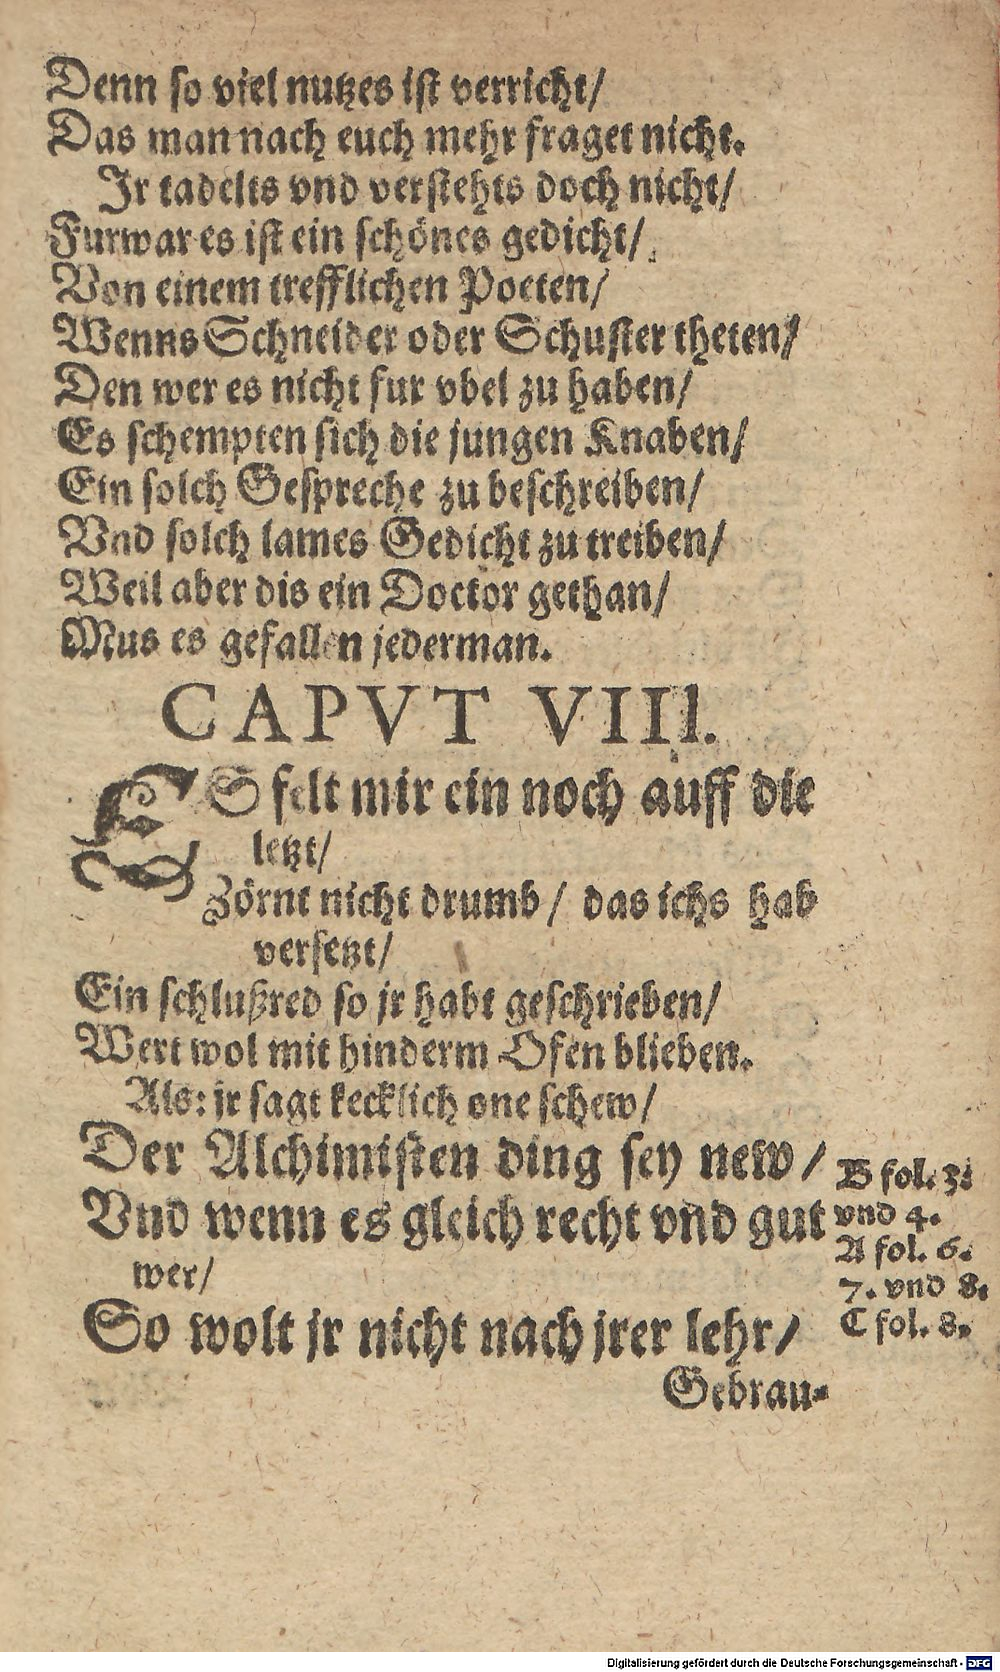 Denn so viel nutzes ist verricht/
Das man nach euch mehr fraget nicht.
Jr tadelts vnd verstehts doch nicht/
Furwar es ist ein schönes gedicht/
Von einem trefflichen Poeten/
Wenns Schneider oder Schuster theten/
Den wer es nicht fur vbel zu haben/
Es schempten sich die jungen Knaben/
Ein solch Gespreche zu beschreiben/
Vnd solch lames Gedicht zu treiben/
Weil aber dis ein Doctor gethan/
Mus es gefallen jederman.
CAPVT VIII.
ES felt mir ein noch auff die
letzt/
Zörnt nicht drumb / das ichs hab
versetzt/
Ein schlußred so jr habt geschrieben/
Wert wol mit hinderm Ofen blieben.
Als: jr sagt kecklich one schew/
Der Alchimisten ding sey new /
Vnd wenn es gleich recht vnd gut
wer/
So wolt jr nicht nach jrer lehr/
Gebrau-
B fol. 3.
vnd 4.
A fol. 6.
7. vnd 8.
C fol. 8.
Digitalisierung gefördert durch die Deutsche Forschungsgemeinschaft - DFG